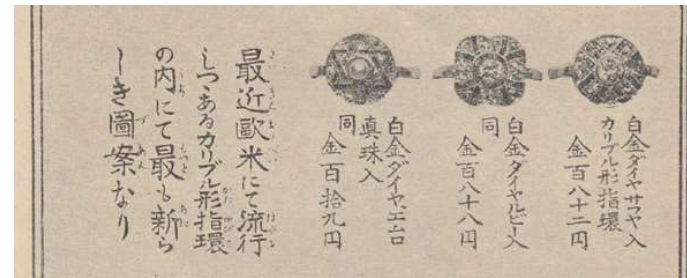 白金ダイヤサファヤ入
カリブル形指環
金百八十二円
白金ダイヤルビー入
同
金百八十八円
白金ダイヤエムロ
真珠入
同
金百拾九円
最近歐米にて流行
しつゝあるカリブル形指環
の内にて最も新ら
しき圖案なり